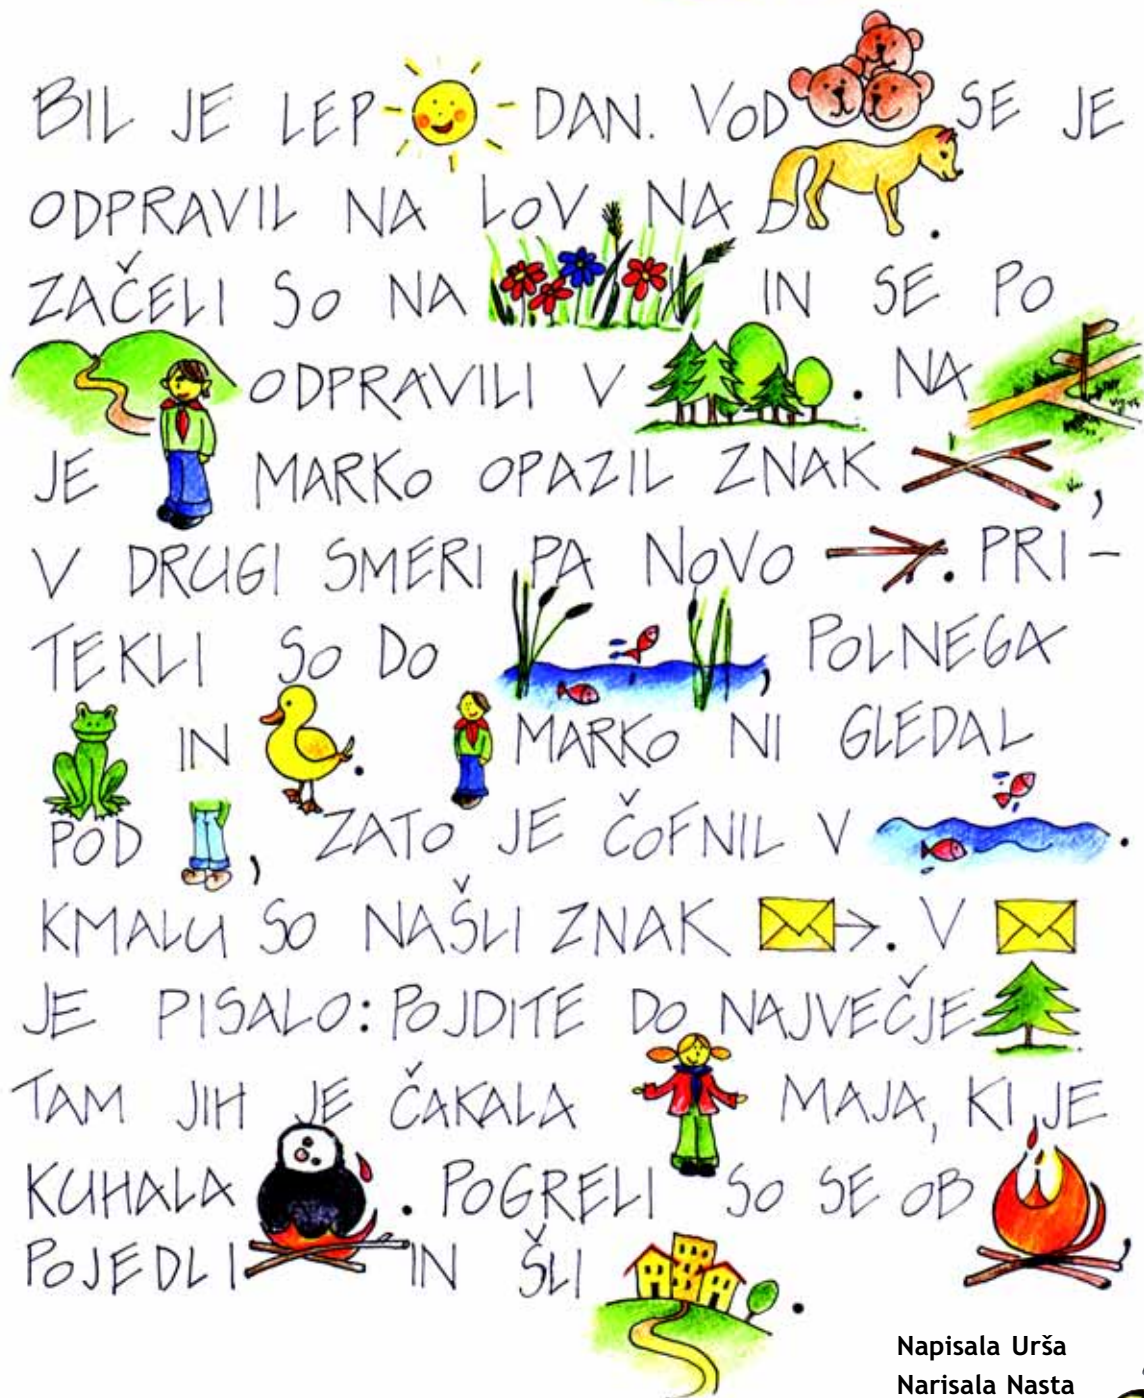 BIL JE LEP DAN. VOD SE JE
ODPRAVIL NA LOV NA .
ZAČELI SO NA IN SE PO
ODPRAVILI V . NA
JE MARKO OPAZIL ZNAK ,
V DRUGI SMERI PA NOVO . PRI-
TEKLI SO DO , POLNEGA
IN . MARKO NI GLEDAL
POD , ZATO JE ČOFNIL V .
KMALU SO NAŠLI ZNAK . V
JE PISALO: POJDITE DO NAJVEČJE
TAM JIH JE ČAKALA MAJA, KI JE
KUHALA . POGRELI SO SE OB ,
POJEDLI IN ŠLI .
Napisala Urša
Narisala Nasta